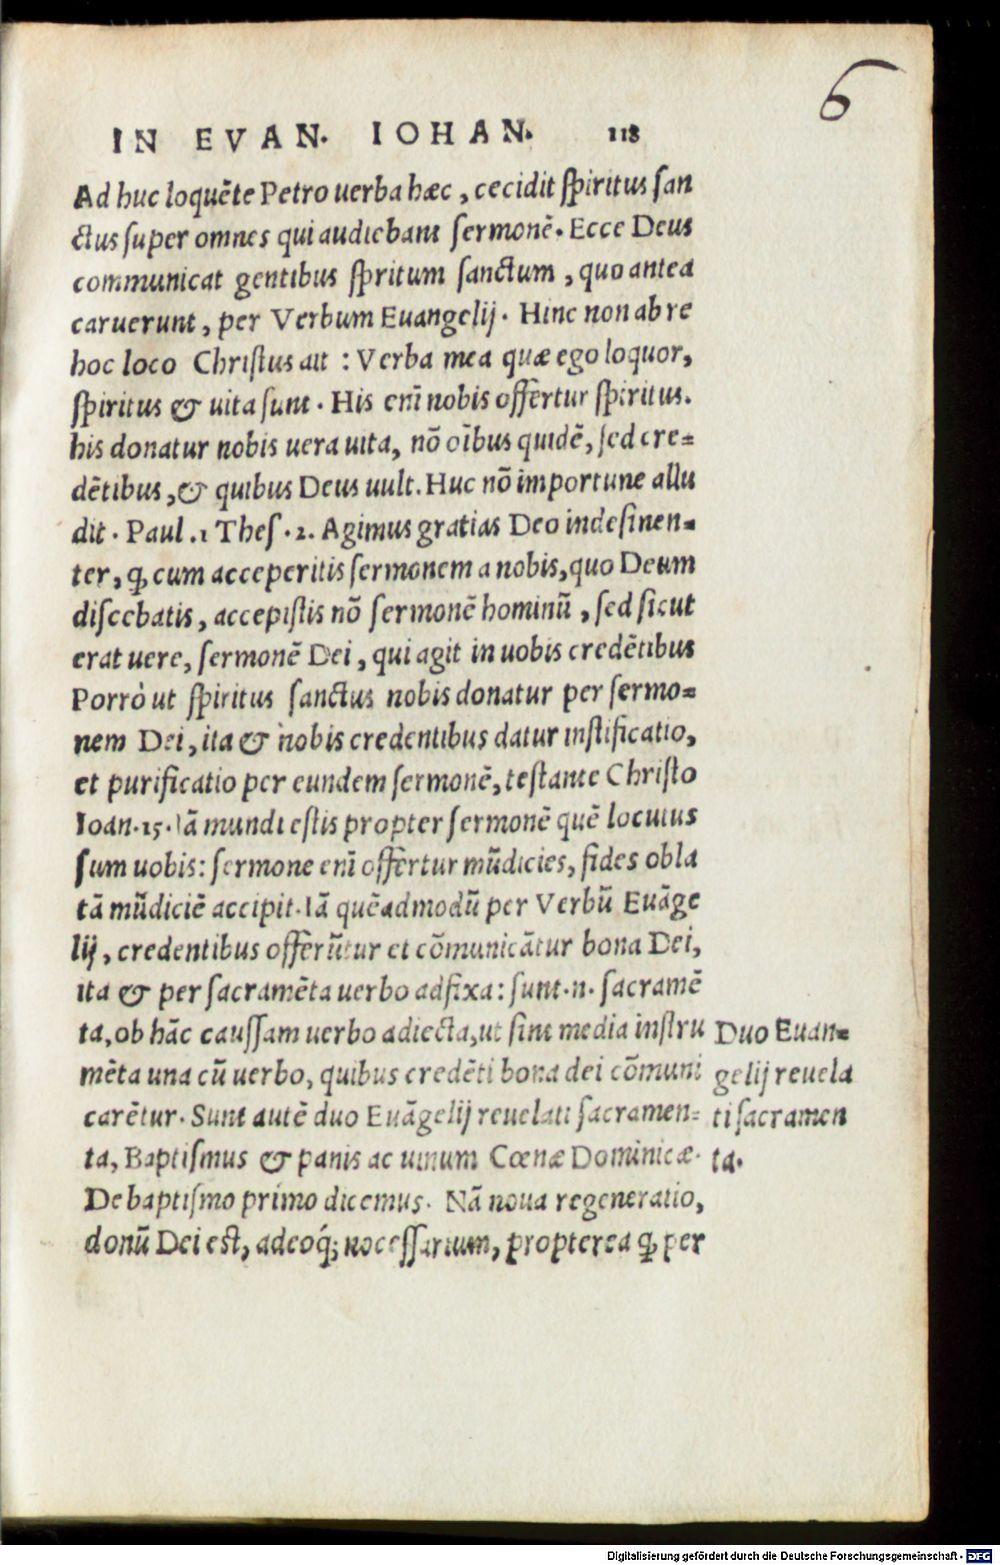 6
IN EVAN. IOHAN. 118
Ad huc loquẽte Petro uerba hæc, cecidit ſpiritus ſan
ctus ſuper omnes qui audiebant ſermonẽ. Ecce Deus
communicat gentibus ſpritum ſanctum, quo antea
caruerunt, per Verbum Euangelij. Hinc non ab re
hoc loco Chriſtus ait : Verba mea quæ ego loquor,
ſpiritus & uita ſunt. His enĩ nobis offertur ſpiritus.
his donatur nobis uera uita, nõ oĩbus quidẽ, ſed cre=
dẽtibus, & quibus Deus uult. Huc nõ importune allu
dit. Paul. 1 Theſ. 2. Agimus gratias Deo indeſinen=
ter, ꝙ cum acceperitis ſermonem a nobis, quo Deum
diſcebatis, accepiſtis nõ ſermonẽ hominũ, ſed ſicut
erat uere, ſermonẽ Dei, qui agit in uobis credẽtibus
Porrò ut ſpiritus ſanctus nobis donatur per ſermo=
nem Dei, ita & nobis credentibus datur iuſtificatio,
et purificatio per eundem ſermonẽ, teſtante Chriſto
Ioan. 15. Iã mundi eſtis propter ſermonẽ quẽ locutus
ſum uobis: ſermone enĩ offertur mũdicies, fides obla
tã mũdiciẽ accipit. Iã quẽadmodũ per Verbũ Euãge
lij, credentibus offerũtur et cõmunicãtur bona Dei,
ita & per ſacramẽta uerbo adfixa: ſunt .n. ſacramẽ
ta, ob hãc cauſſam uerbo adiecta, ut ſint media inſtru
mẽta una cũ uerbo, quibus credẽti bona dei cõmuni
carẽtur. Sunt autẽ duo Euãgelij reuelati ſacramen=
ta, Baptiſmus & panis ac uinum Cœnæ Dominicæ.
De baptiſmo primo dicemus. Nã noua regeneratio,
donũ Dei eſt, adeoq́; neceſſarium, propterea ꝙ per
Duo Euan=
gelij reuela
ti ſacramen
ta.
Digitalisierung gefördert durch die Deutsche Forschungsgemeinschaft - DFG